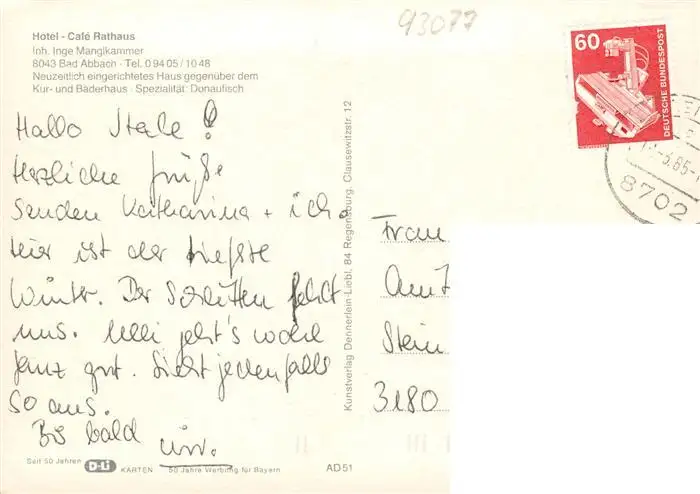 93077
Hotel - Café Rathaus
Inh. Inge Manglkammer
8043 Bad Abbach · Tel. 0 94 05 / 10 48
Neuzeitlich eingerichtetes Haus gegenüber dem
Kur- und Bäderhaus · Spezialität: Donaufisch
60
DEUTSCHE BUNDESPOST
-5.85-1
8702
Hallo
Herzliche Grüße
senden Katharina + ich.
Hier ist der tiefste
Winter. Der Schlitten fehlt
uns. Uelli geht's wohl
ganz gut. Sieht jedenfalls
so aus.
Bis bald
Frau
Stein
3180
Kunstverlag Dennerlein-Liebl, 84 Regensburg, Clausewitzstr. 12
Seit 50 Jahren D-Li KARTEN 50 Jahre Werbung für Bayern
AD 51